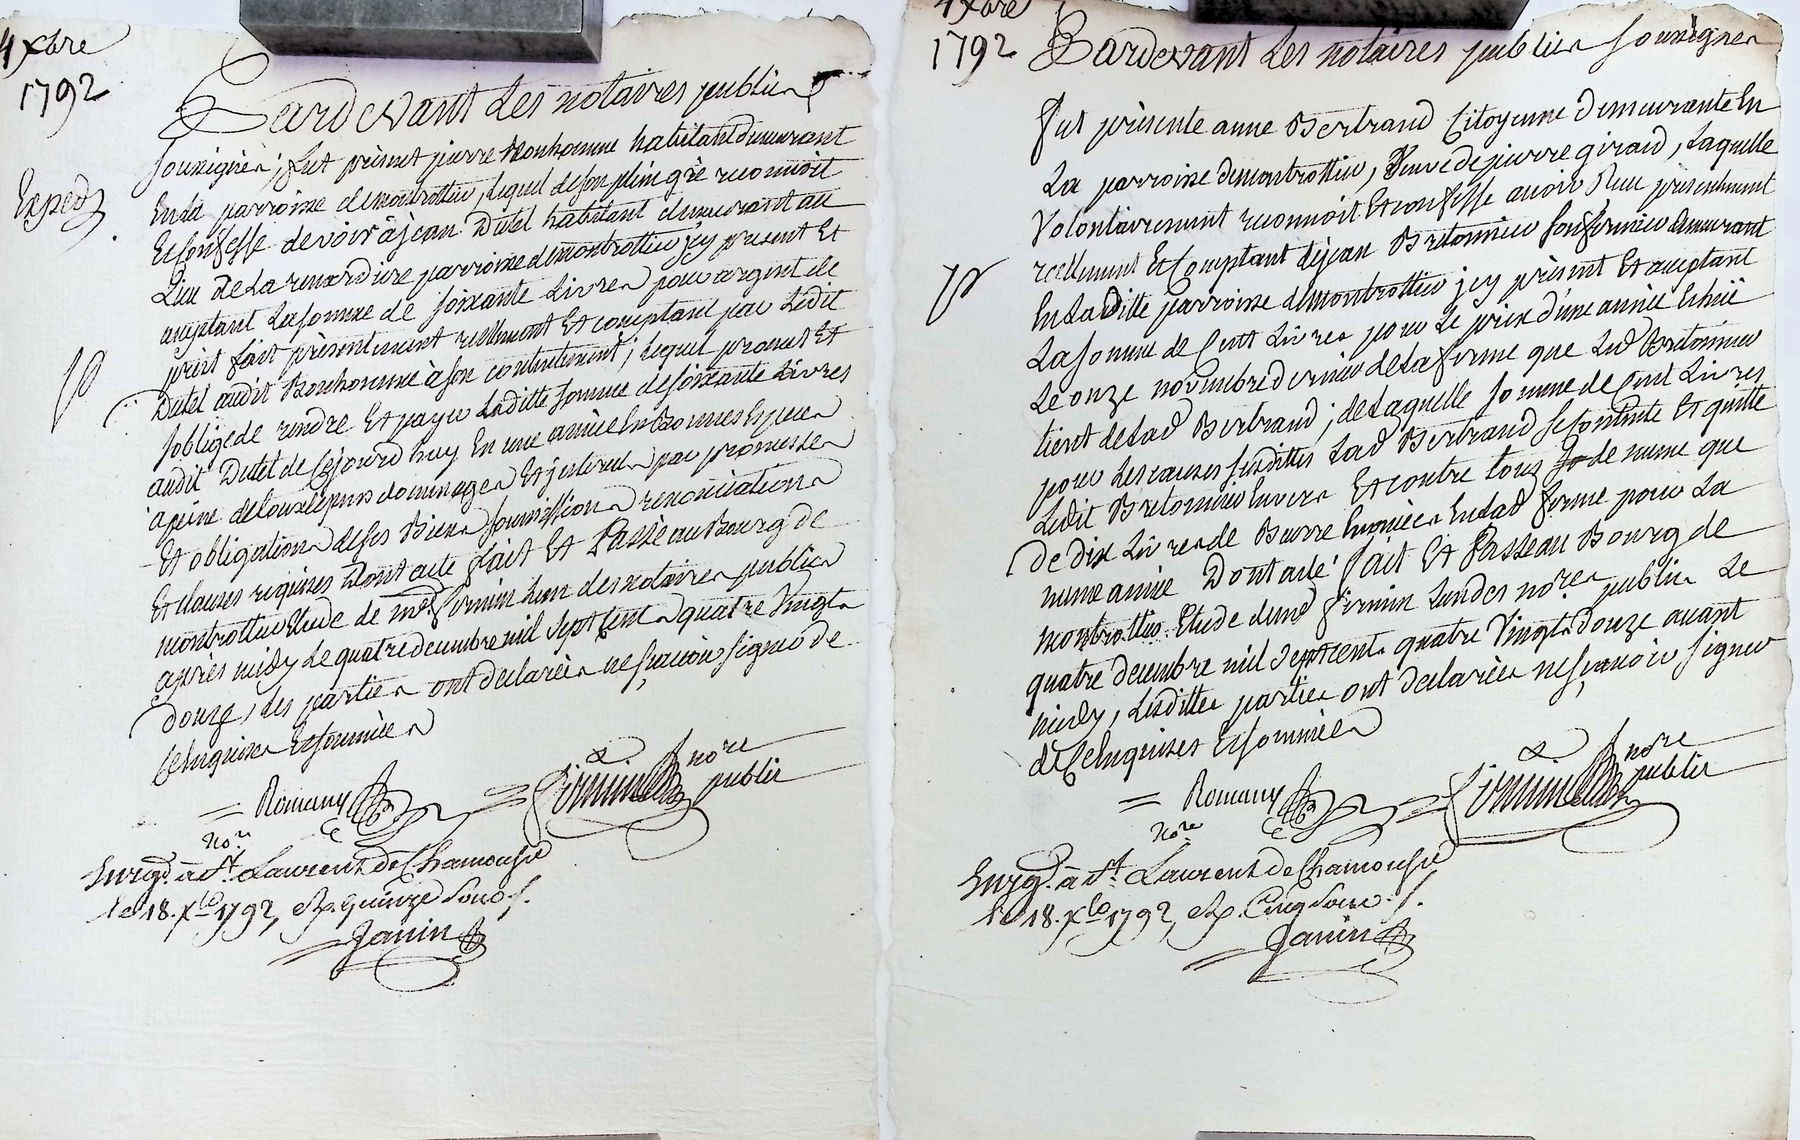 4 Xbre
1792
Pardevant Les notaires publics
soussignés, fut présent pierre Bonhomme habitant demeurant
En la parroisse de montrottier, lequel de son plein gré reconnoit
Exped
Et Confesse devoir à jean Dutel habitant demeurant au
Lieu de La renardiere parroisse de montrottier jcy present Et
acceptant La somme de soixante Livres pour argent de
prêt fait présentement reellement Et comptant par Ledit
Dutel audit Bonhomme à son contentement, lequel promet Et
soblige de rendre Et payer Laditte somme de soixante Livres
audit Dutel de Cejourd huy En une année En Bonnes Especes
apeine de tous dépens dommages Et jnterets par promesses
Et obligations de ses Biens soumissions renonciations
Et clauses requises Dont acte fait Et Passé au Bourg de
montrottier Etude de me firmin L'un des notaires publics
après midy Le quatre decembre mil sept Cents quatre Vingts
douze, Les parties ont declarées ne sçavoir signer de
Ce Enquises Et sommées
Romany
nore
firmin nore
public
Enrgé. à St. Laurent de Chamousse
le 18. Xbre 1792, R. Quinze Sous.
Janin
4 Xbre
1792
Pardevant Les notaires publics soussignés
fut présente anne Bertrand Citoyenne demeurante En
La parroisse de montrottier, Veuve de pierre girard, Laquelle
Volontairement reconnoit Et confesse avoir Reçu présentement
reellement Et Comptant de jean Bretonnier son fermier demeurant
En La Ditte parroisse de montrottier jcy présent Et acceptant
La somme de Cent Livres pour Le prix d'une année Echüe
Le onze novembre dernier de La ferme que Led Bretonnier
tient de Lad Bertrand; de Laquelle somme de Cent Livres
pour Les causes susdittes Lad Bertrand se contente Et quitte
Ledit Bretonnier Envers Et contre tous de meme que
De dix Livres de Beurre Enoncées En Lad ferme pour La
meme année Dont acte fait Et Passé au Bourg de
montrottier Etude de me firmin L'un des nores publics Le
quatre decembre mil Sept cents quatre Vingts douze avant
midy, Lesdittes parties ont declarées ne sçavoir signer
de Ce Enquises Et sommées
Romany
nore
firmin nore
public
Enrgé. à St. Laurent de Chamousse
le 18. Xbre 1792, R. Cinq Sous.
Janin